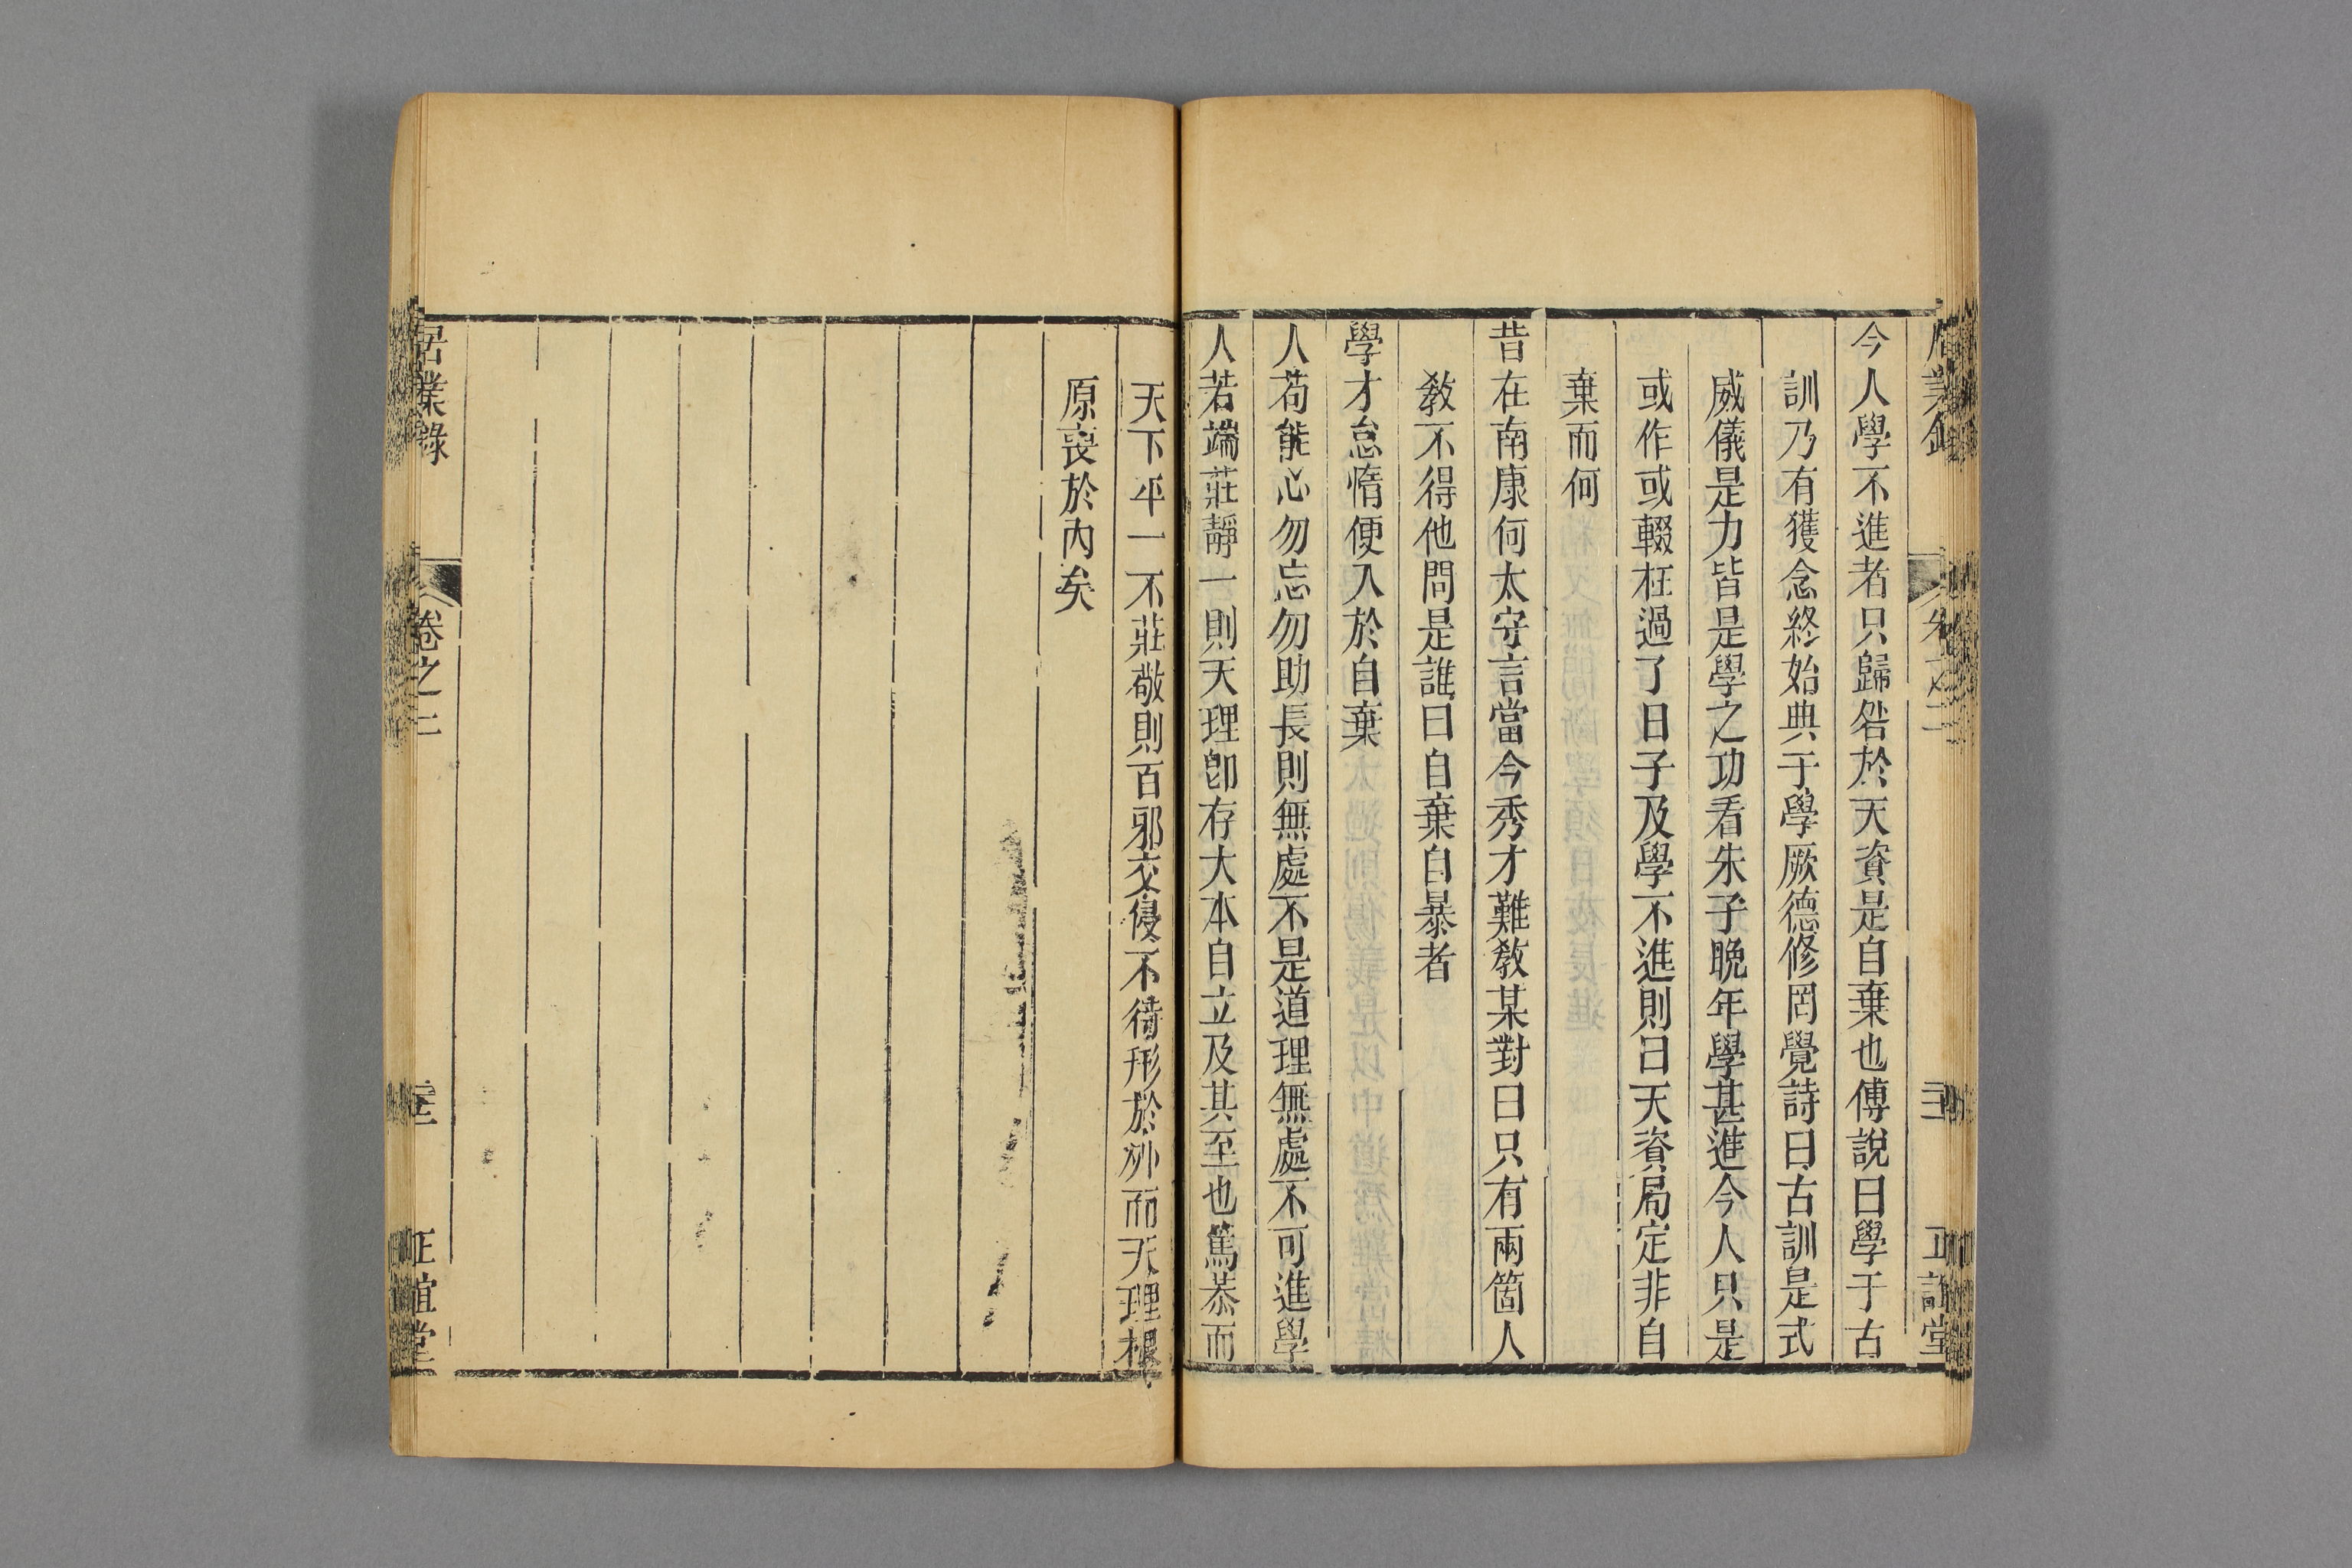 今人學不進者只歸咎於天資是自棄也傅說曰學于古
訓乃有獲念終始典于學厥德修罔覺詩曰古訓是式
威儀是力皆是學之功看朱子晚年學甚進今人只是
或作或輟枉過了日子及學不進則曰天資局定非自
棄而何
昔在南康何太守言當今秀才難教某對曰只有兩箇人
教不得他問是誰曰自棄自暴者
學才怠惰便入於自棄
人苟能心勿忘勿助長則無處不是道理無處不可進學
人若端莊靜一則天理卽存大本自立及其至也篤恭而
天下平一不莊敬則百邪交侵不待形於外而天理根
原喪於內矣
居業錄
卷之二
正誼堂